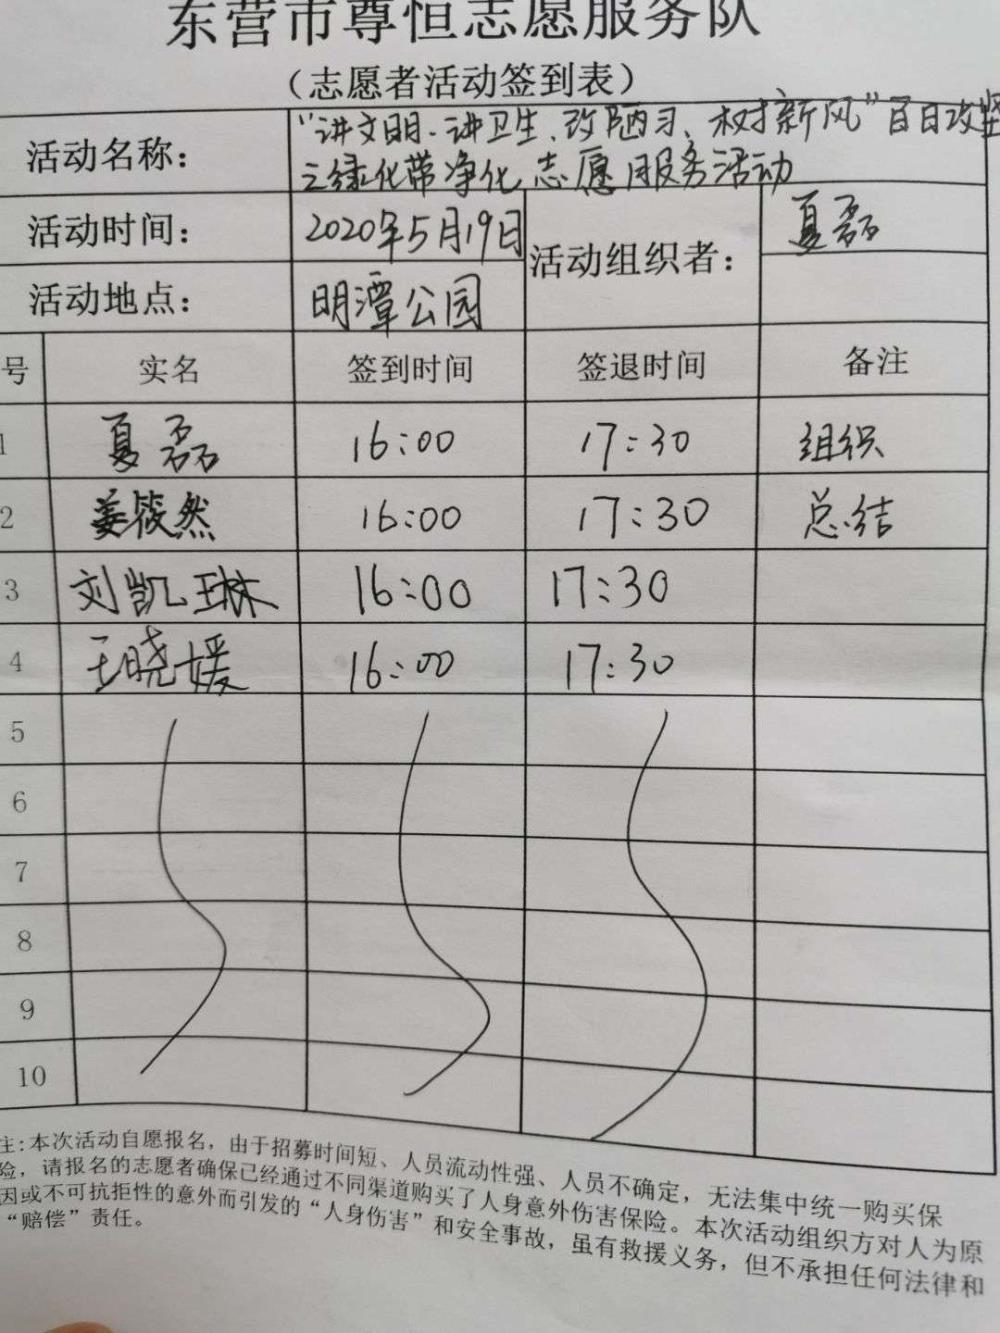 东营市尊恒志愿服务队
（志愿者活动签到表）
活动名称： “讲文明、讲卫生、改陋习、树新风”百日攻坚
之绿化带净化志愿服务活动
活动时间： 2020年5月19日 活动组织者： 夏磊
活动地点： 明潭公园
号 实名 签到时间 签退时间 备注
1 夏磊 16:00 17:30 组织
2 姜筱然 16:00 17:30 总结
3 刘凯琳 16:00 17:30
4 王晓媛 16:00 17:30
5
6
7
8
9
10
注：本次活动自愿报名，由于招募时间短、人员流动性强、人员不确定，无法集中统一购买保
险，请报名的志愿者确保已经通过不同渠道购买了人身意外伤害保险。本次活动组织方对人为原
因或不可抗拒性的意外而引发的“人身伤害”和安全事故，虽有救援义务，但不承担任何法律和
“赔偿”责任。